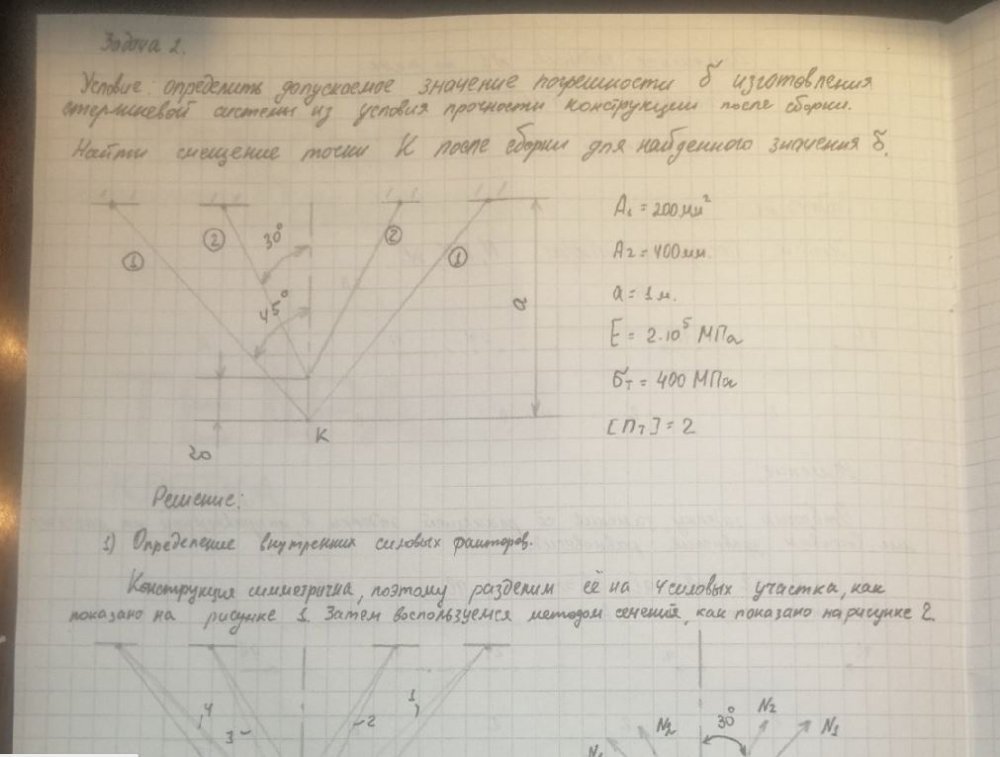 Задача 2.
Условие определить допускаемое значение погрешности δ изготовления
стержневой системы из условия прочности конструкции после сборки.
Найти смещение точки К после сборки для найденного значения δ.
А₁ = 200 мм²
② 30° ② А2 = 400 мм.
① ①
а = 1 м.
45° а
E = 2·10⁵ МПа
бт = 400 МПа
К [nт] = 2
Решение:
1) Определение внутренних силовых факторов.
Конструкция симметрична, поэтому разделим её на 4 силовых участка, как
показано на рисунке 1. Затем воспользуемся методом сечений, как показано на рисунке 2.
4 3 2 1
N₂ 30° N₂ N₁
N₁